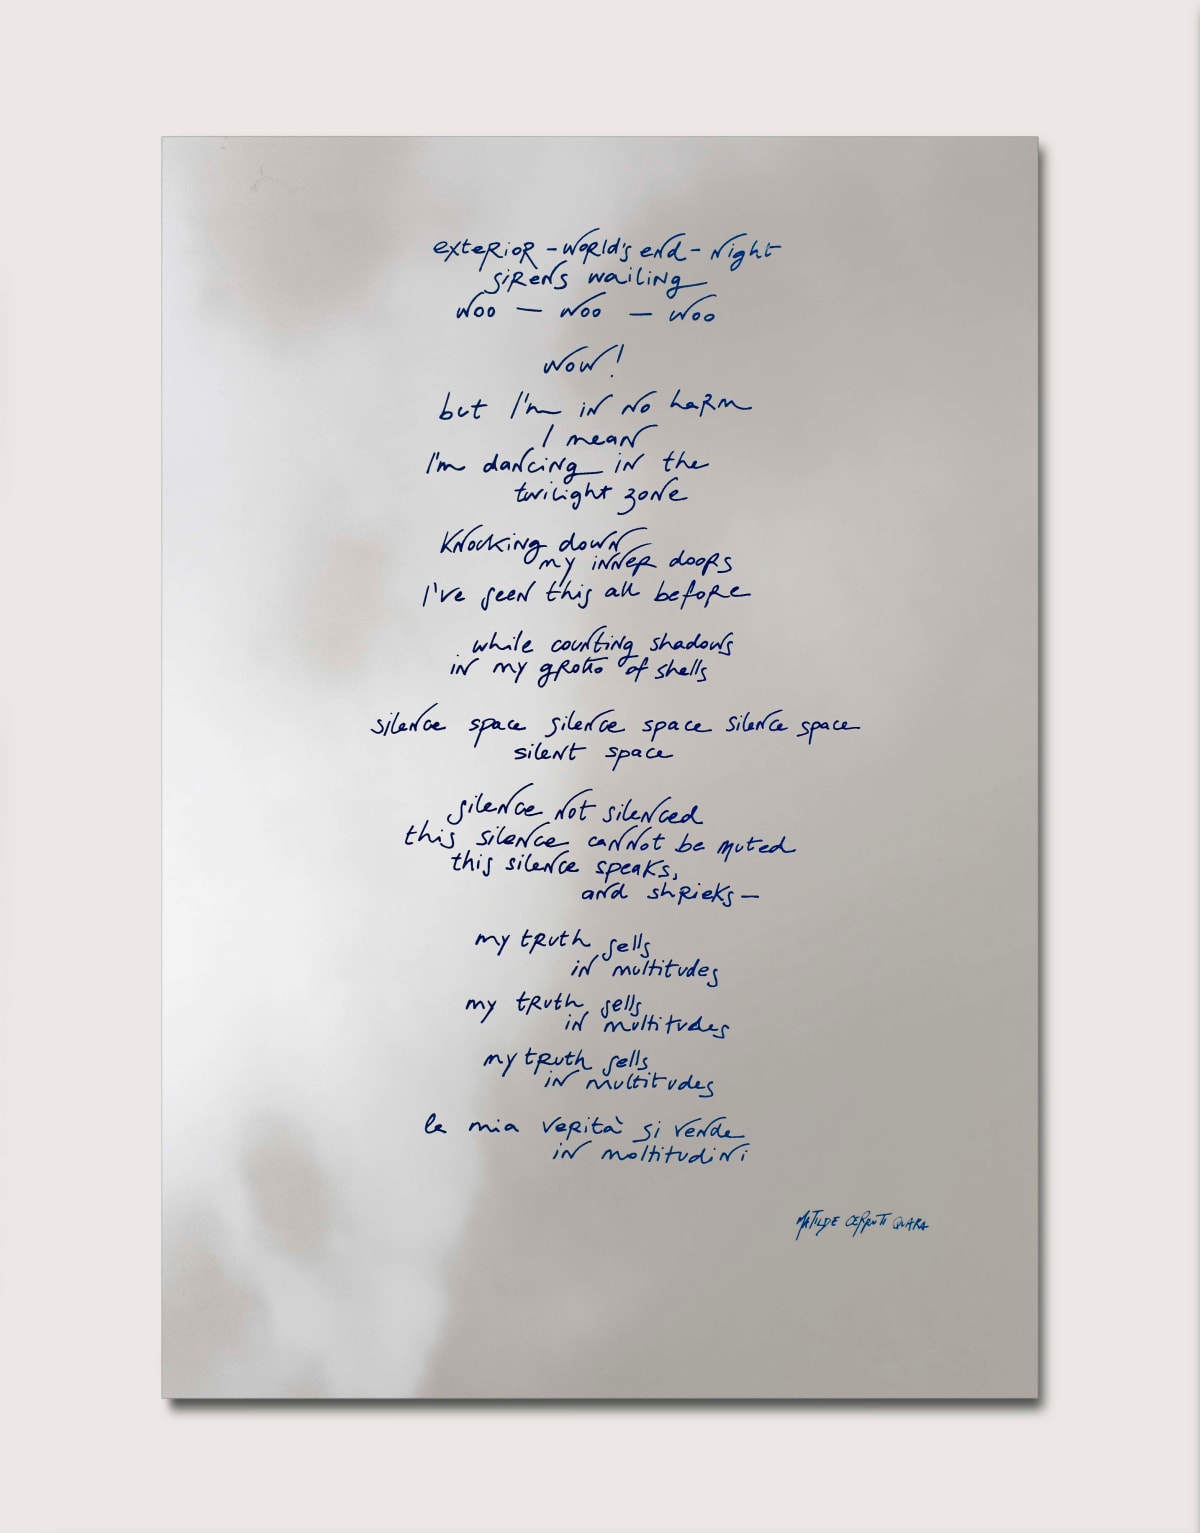 exterior - world's end - night
sirens wailing
woo — woo — woo
wow!
but I'm in no harm
I mean
I'm dancing in the
twilight zone
knocking down
my inner doors
I've seen this all before
while counting shadows
in my grotto of shells
silence space silence space silence space
silent space
silence not silenced
this silence cannot be muted
this silence speaks,
and shrieks —
my truth sells
in multitudes
my truth sells
in multitudes
my truth sells
in multitudes
la mia verità si vende
in moltitudini
MATILDE CERRUTI QUARA